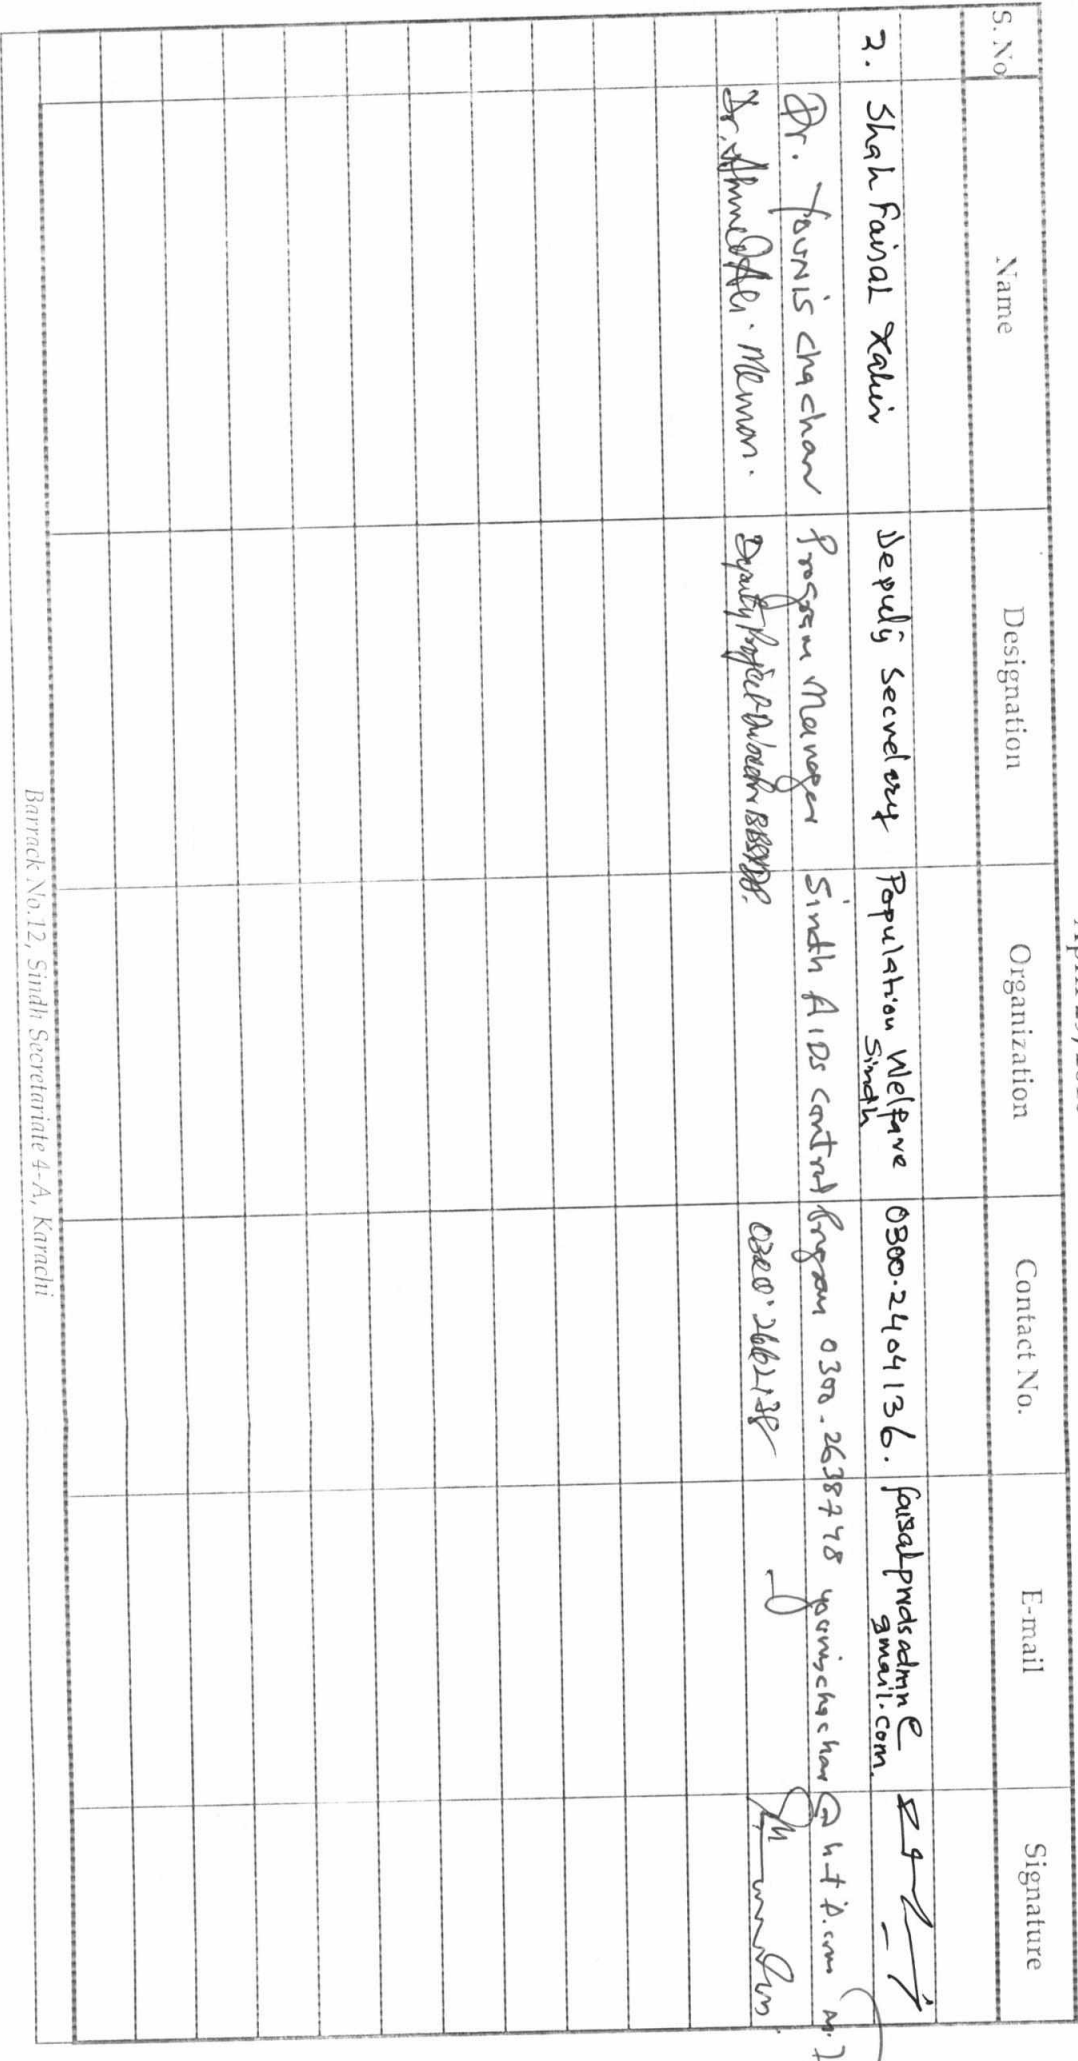 S. No Name Designation Organization Contact No. E-mail Signature
2. Shah Faisal Deputy Secretary Population Welfare Sindh 0300-2404136. faisalpwdsadmn@gmail.com.
Dr. Younis Chachar Program Manager Sindh AIDS Control Program 0300-2638748
Dr. Ahmed Ali Memon. Deputy Project Director
Barrack No.12, Sindh Secretariate 4-A, Karachi